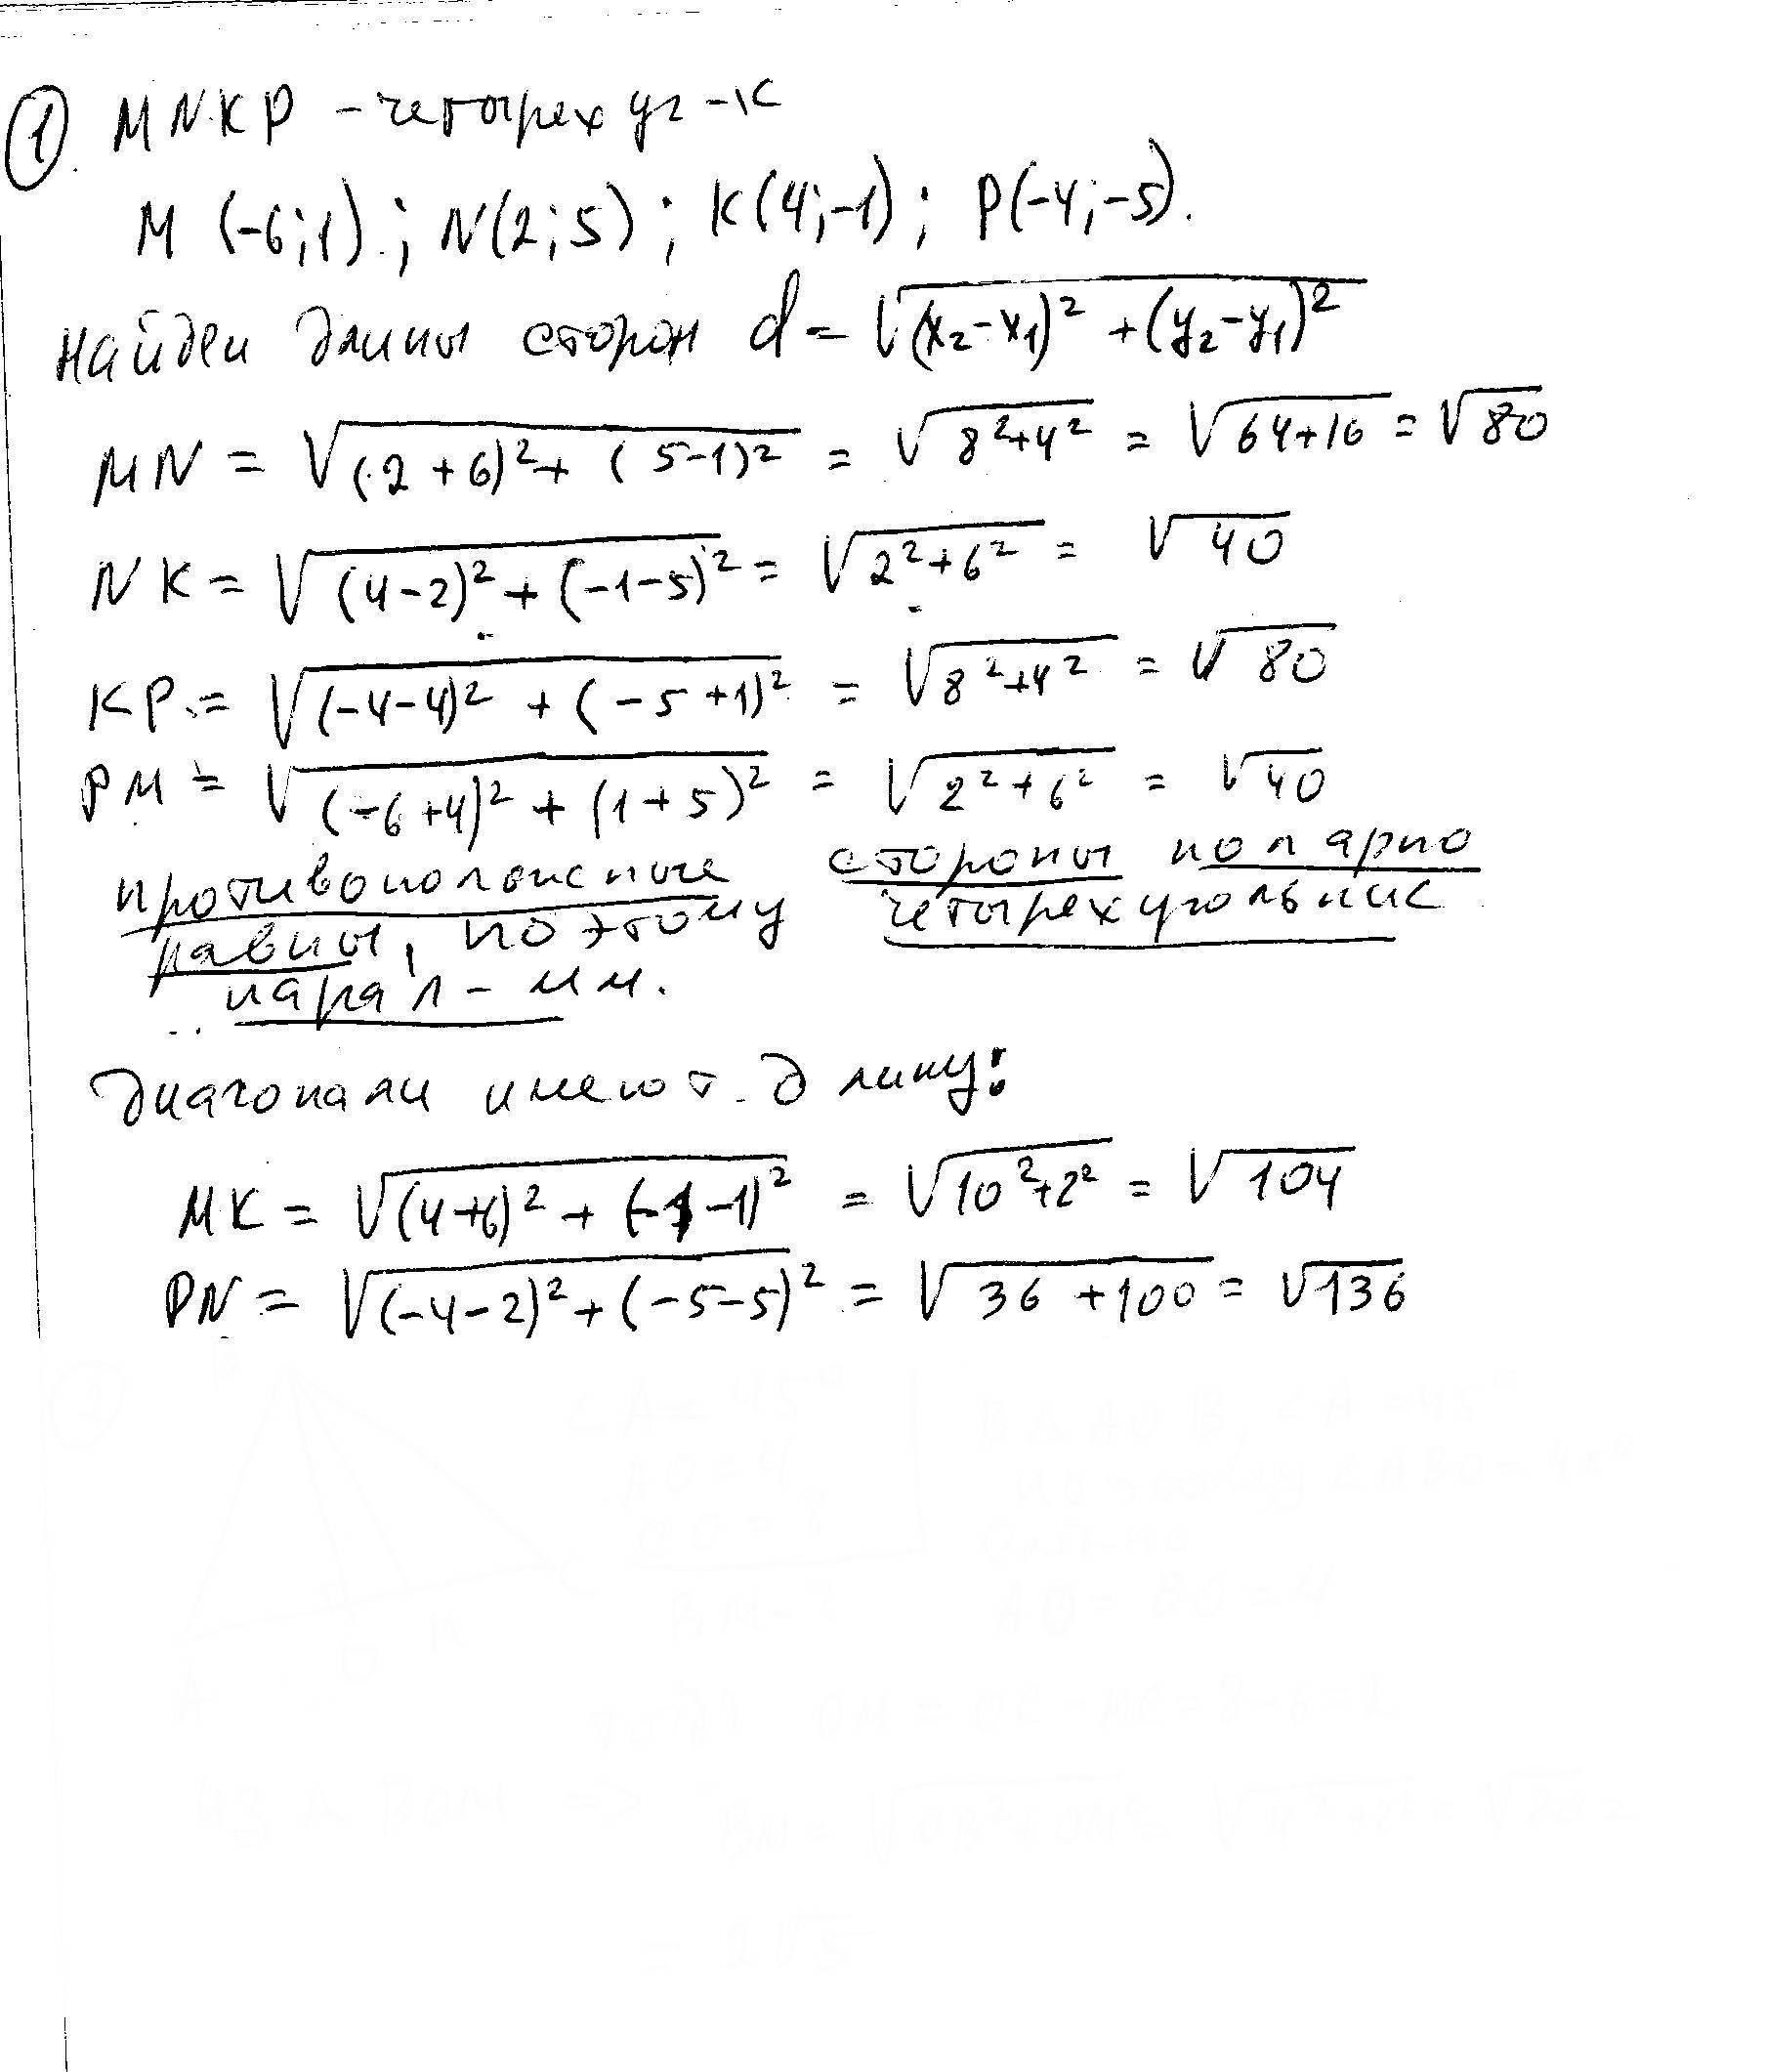 ① MNKP – четырехуг-к
M (-6;1); N(2;5); K(4;-1); P(-4;-5).
Найдем длины сторон d = √((x₂-x₁)² + (y₂-y₁)²)
MN = √((2+6)² + (5-1)²) = √(8²+4²) = √(64+16) = √80
NK = √((4-2)² + (-1-5)²) = √(2²+6²) = √40
KP = √((-4-4)² + (-5+1)²) = √(8²+4²) = √80
PM = √((-6+4)² + (1+5)²) = √(2²+6²) = √40
противоположные стороны попарно
равны, поэтому четырехугольник
парал-мм.
Диагонали имеют длину:
MK = √((4+6)² + (-1-1)²) = √(10²+2²) = √104
PN = √((-4-2)² + (-5-5)²) = √(36+100) = √136